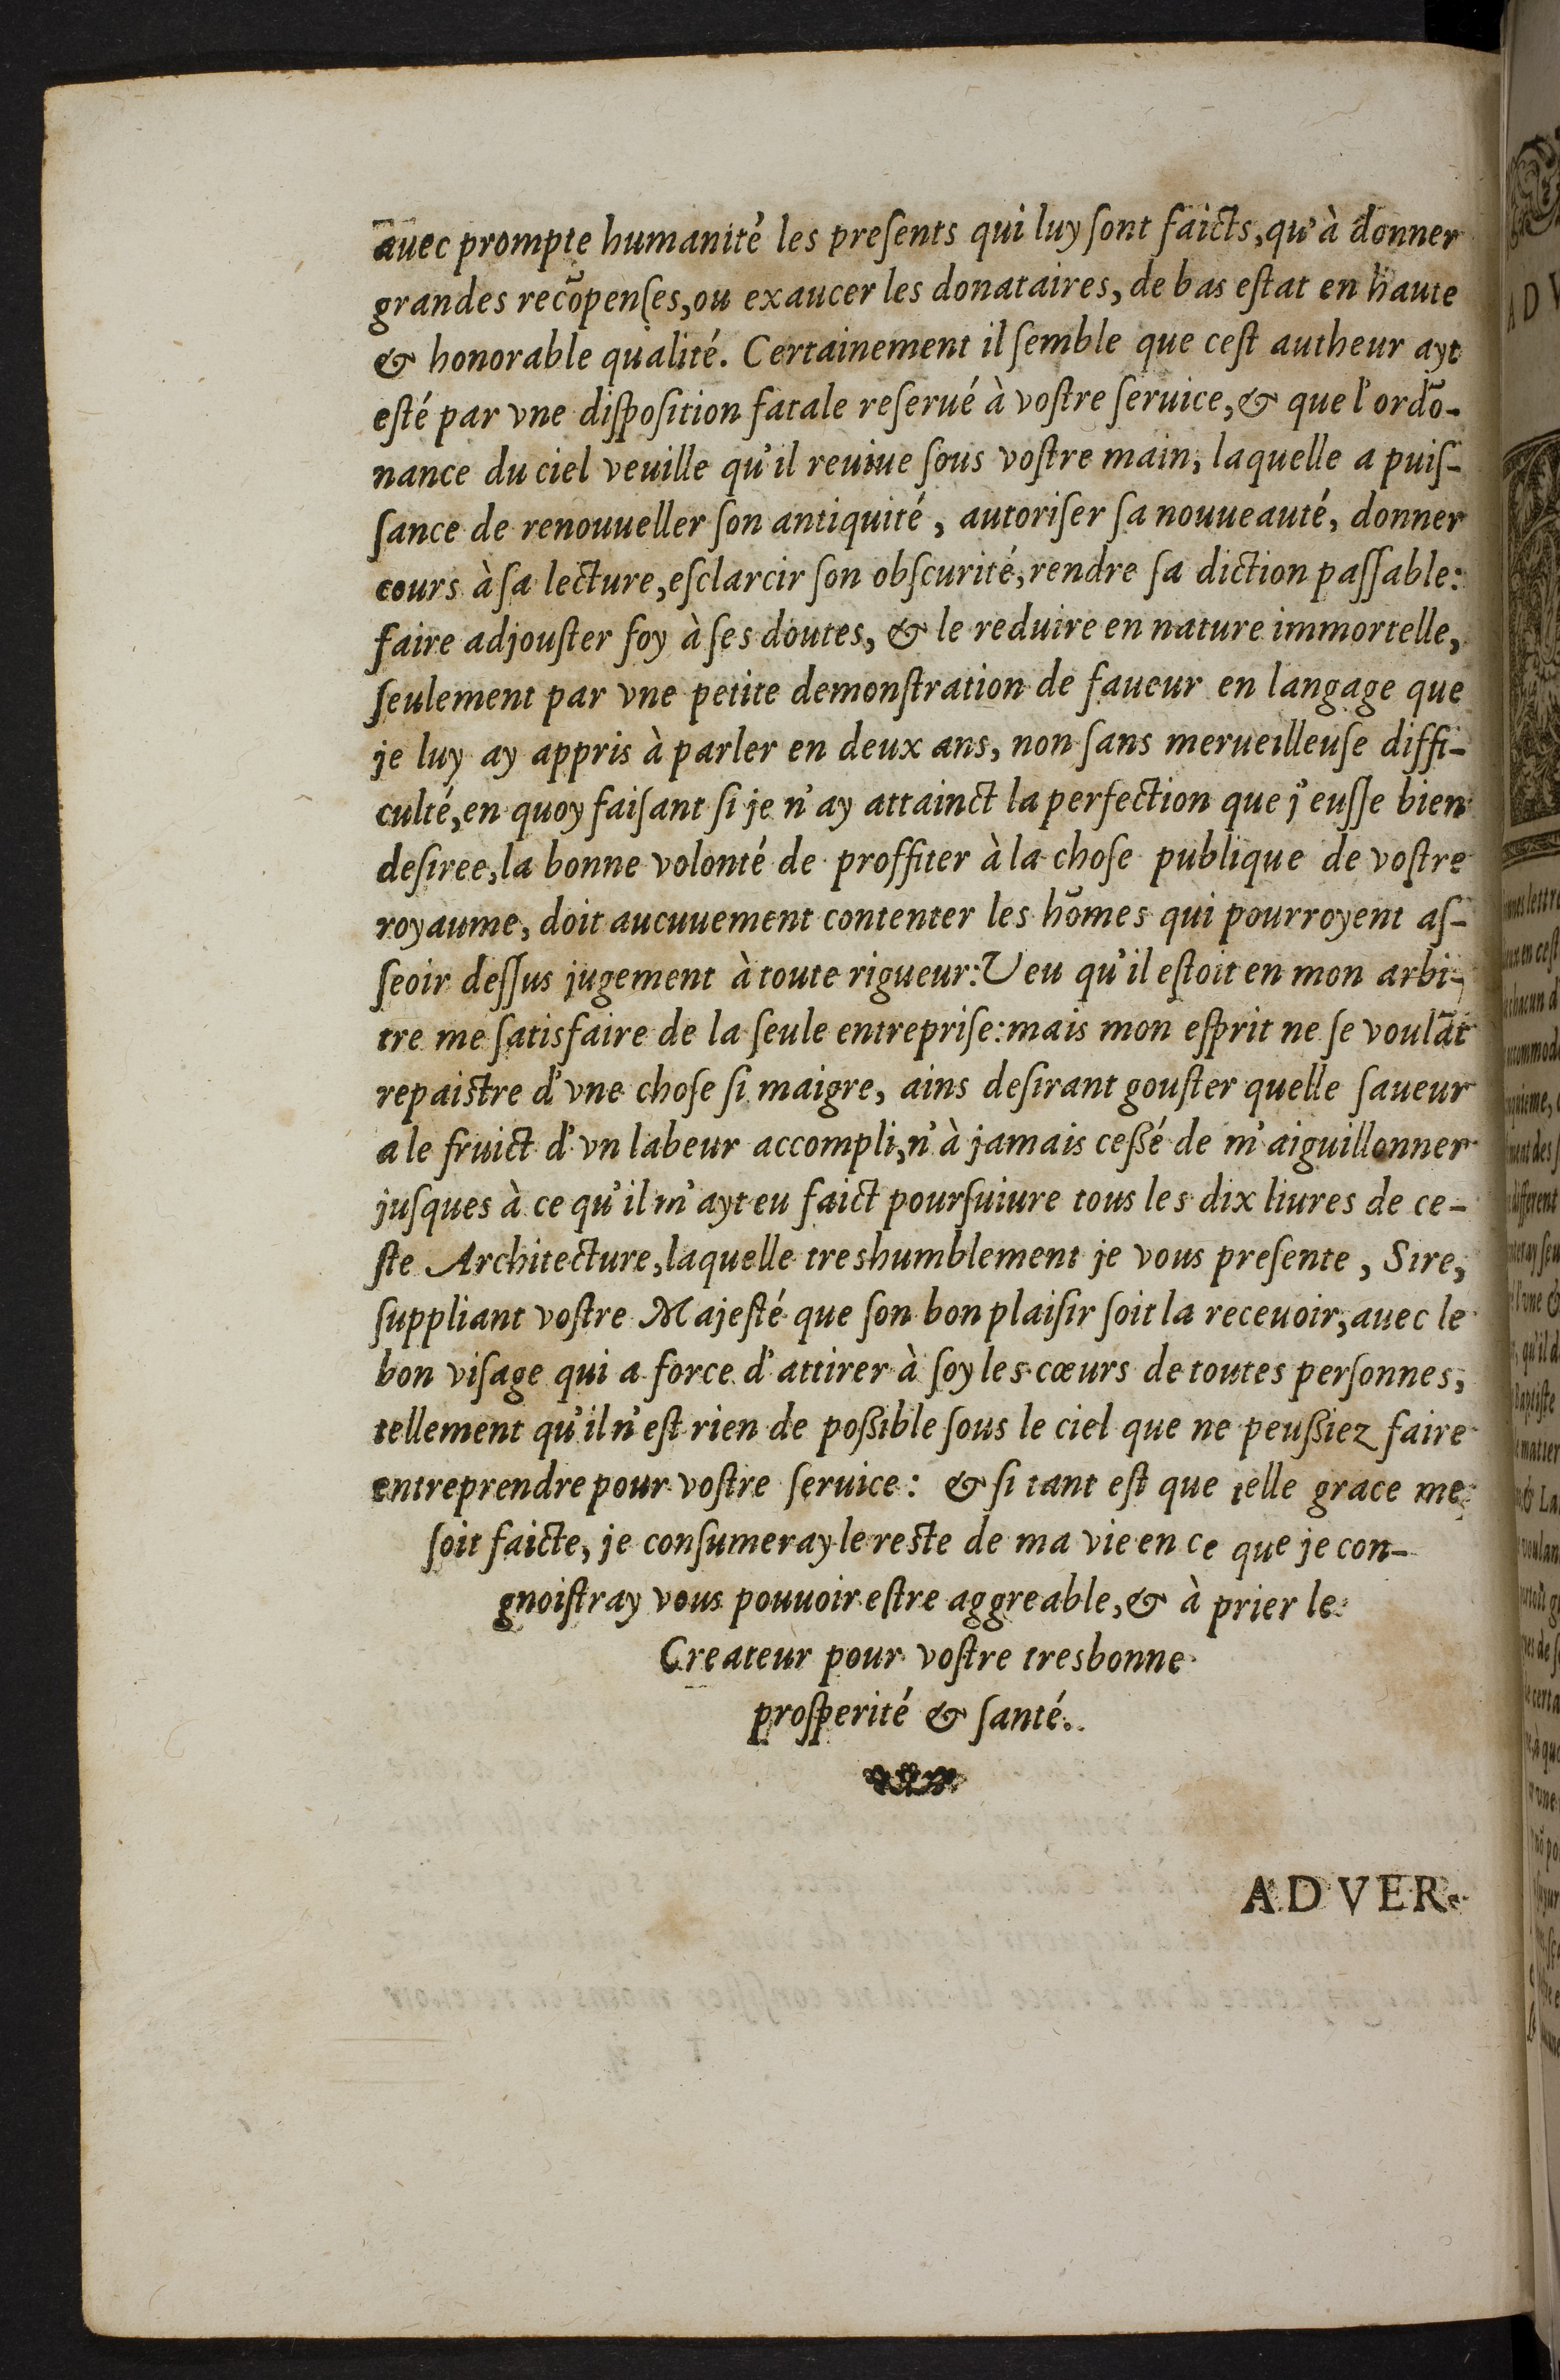 auec prompte humanité les preſents qui luy ſont faicts, qu'à donner
grandes recõpenſes, ou exaucer les donataires, de bas eſtat en haute
& honorable qualité. Certainement il ſemble que ceſt autheur ayt
eſté par vne diſpoſition fatale reſerué à voſtre ſeruice, & que l'ordõ-
nance du ciel veuille qu'il reuiue ſous voſtre main, laquelle a puiſ-
ſance de renouueller ſon antiquité, autoriſer ſa nouueauté, donner
cours à ſa lecture, eſclarcir ſon obſcurité, rendre ſa diction paſſable:
faire adjouſter foy à ſes doutes, & le reduire en nature immortelle,
ſeulement par vne petite demonſtration de faueur en langage que
je luy ay appris à parler en deux ans, non ſans merueilleuſe diffi-
culté, en quoy faiſant ſi je n'ay attainct la perfection que j'euſſe bien
deſiree, la bonne volonté de proffiter à la choſe publique de voſtre
royaume, doit aucuuement contenter les hõmes qui pourroyent aſ-
ſeoir deſſus jugement à toute rigueur: Veu qu'il eſtoit en mon arbi-
tre me ſatisfaire de la ſeule entrepriſe: mais mon eſprit ne ſe voulãt
repaistre d'vne choſe ſi maigre, ains deſirant gouſter quelle ſaueur
a le fruict d'vn labeur accompli, n'à jamais ceßé de m'aiguillonner
juſques à ce qu'il m'ayt eu faict pourſuiure tous les dix liures de ce-
ſte Architecture, laquelle treshumblement je vous preſente, Sire,
ſuppliant voſtre Majeſté que ſon bon plaiſir ſoit la receuoir, auec le
bon viſage qui a force d'attirer à ſoy les cœurs de toutes perſonnes,
tellement qu'il n'eſt rien de poßible ſous le ciel que ne peußiez faire
entreprendre pour voſtre ſeruice: & ſi tant eſt que telle grace me
ſoit faicte, je conſumeray le reste de ma vie en ce que je con-
gnoiſtray vous pouuoir eſtre aggreable, & à prier le
Createur pour voſtre tresbonne
proſperité & ſanté.
ADVER-